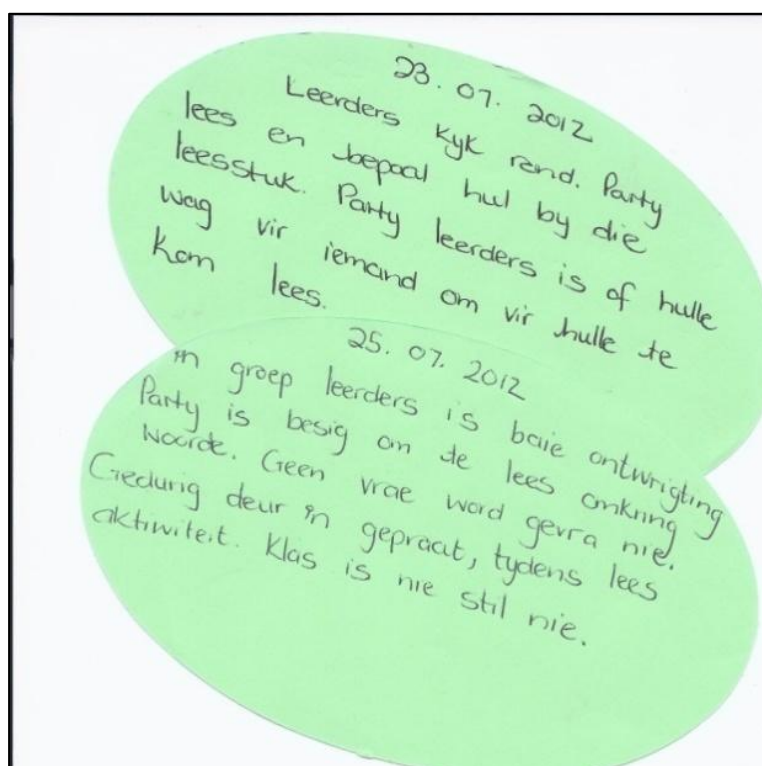 23. 07. 2012
Leerders kyk rond. Party
lees en bepaal hul by die
leesstuk. Party leerders is of hulle
wag vir iemand om vir hulle te
kom lees.
25. 07. 2012
'n groep leerders is baie ontwrigting
Party is besig om te lees omkring
woorde. Geen vrae word gevra nie.
Gedurig deur 'n gepraat, tydens lees
aktiwiteit. Klas is nie stil nie.